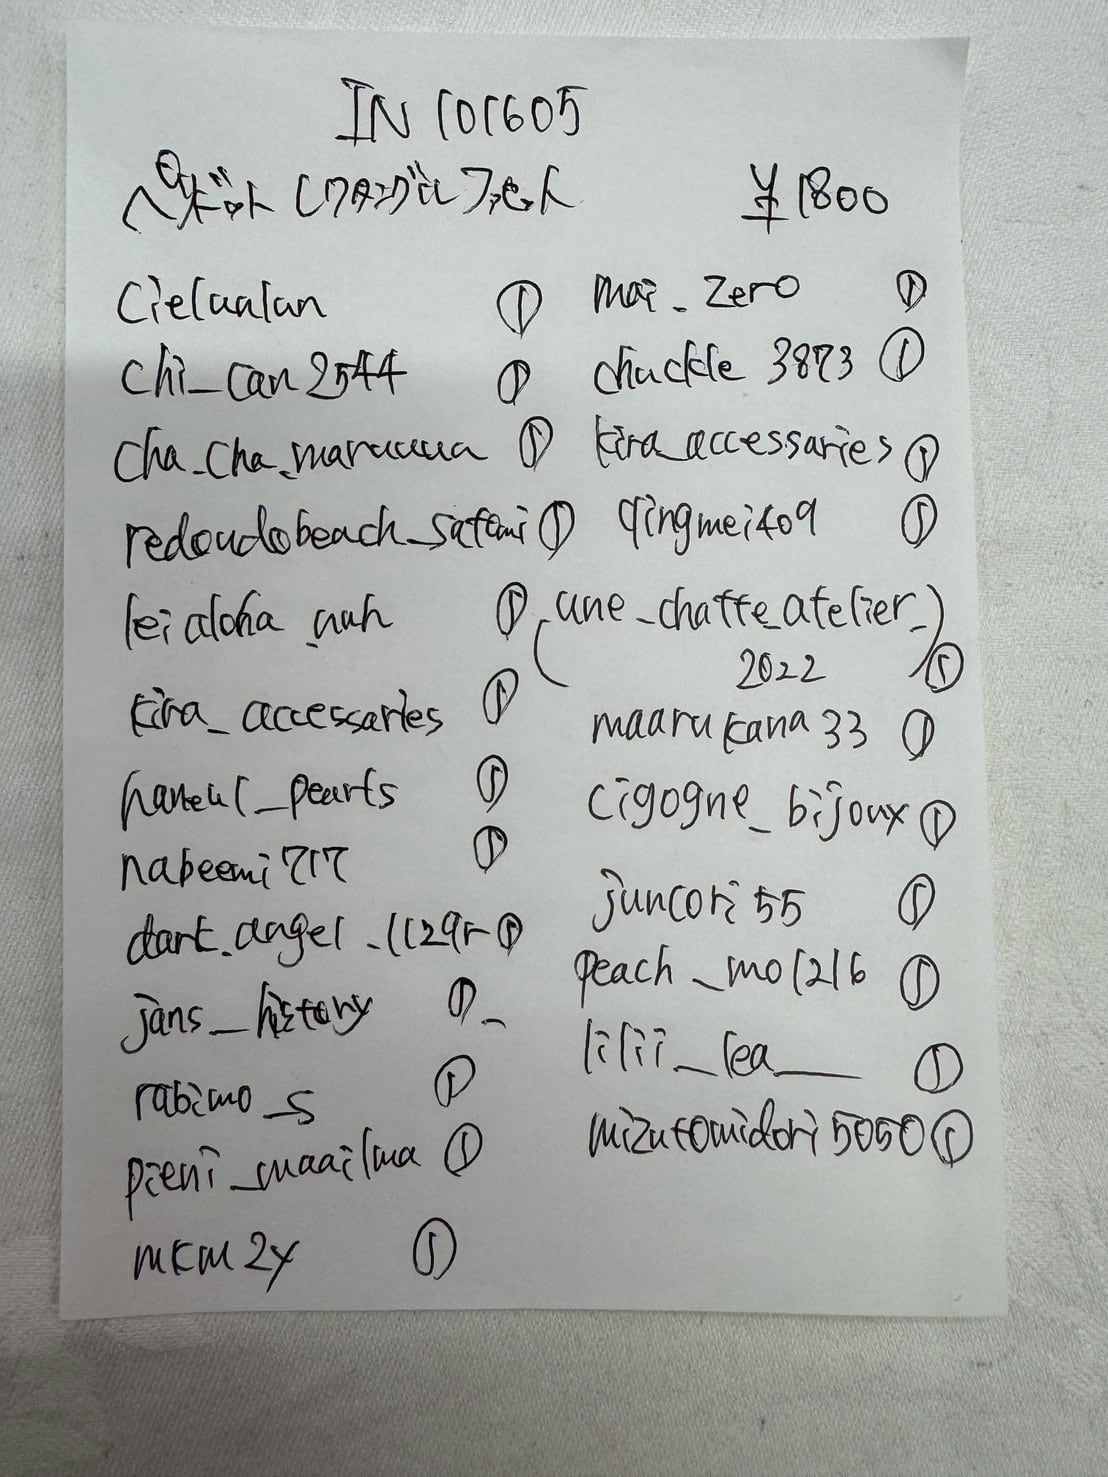 IN 101605
ペリドット レクタングル ファセット ¥1800
cielualun ①
chi_can2544 ①
cha_cha_maruuuua ①
redoudobeach_satomi ①
leialoha_nuh ①
kira_accessaries ①
haneul_pearls ①
nabeemi717 ①
dark.angel_1129r ①
jans_history ①
rabimo_s ①
pieni_maailma ①
mkm2y ①
mai_zero ①
chuckle3873 ①
kira_accessaries ①
qingmei409 ①
(une_chatte_atelier_)
2022 ①
maarukana33 ①
cigogne_bijoux ①
juncori55 ①
peach_mo1216 ①
lilii_lea___ ①
mizutomidori5050 ①